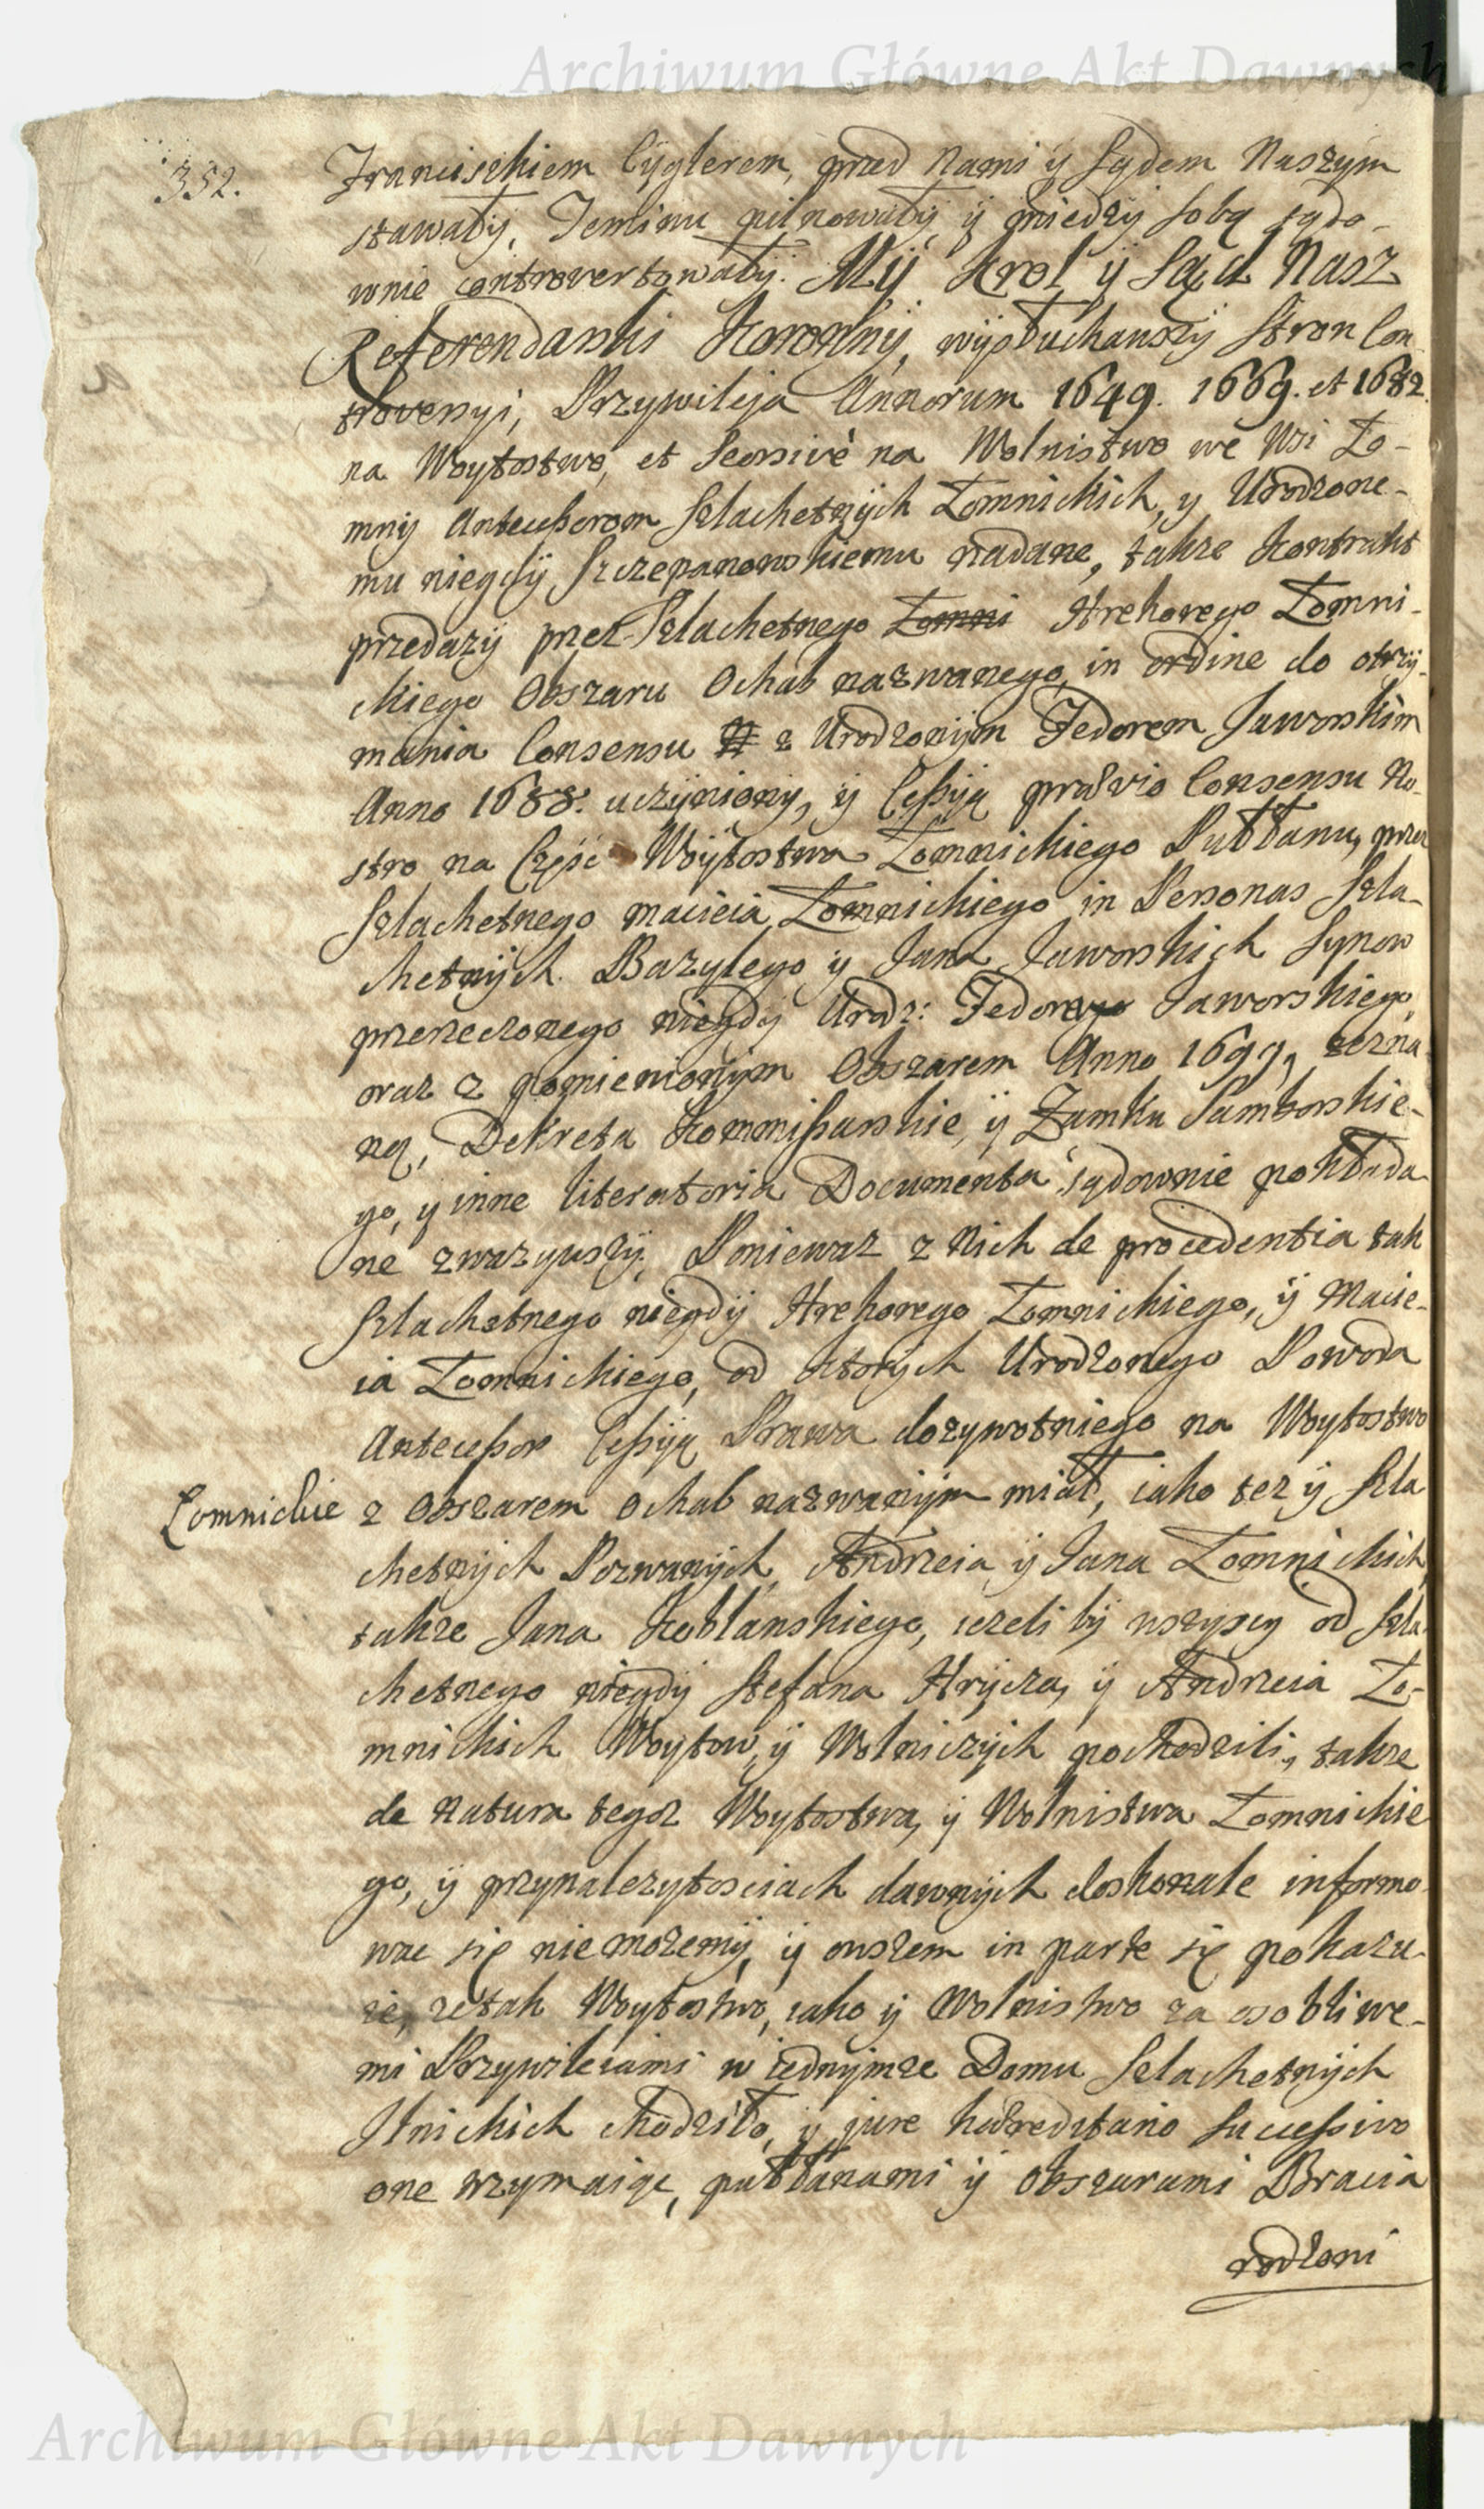 Archiwum Główne Akt Dawnych
352.
Franciszkiem Cyglerem, przed Nami ÿ Sądem Naszym
stawałÿ, Terminu pilnowałÿ, ÿ miedzÿ sobą sądo-
wnie controvertowałÿ. Mÿ Krol ÿ Sąd Nasz
Referendarski Koronnÿ, wÿsłuchawszÿ Stron Con
trowersyi, Przywileja Annorum 1649. 1669. et 1682.
na Woytostwo, et Seorsivè na Wolnistwo we Wsi Ło-
mnÿ Antecessorom Szlachetnÿch Łomnickich, y Urodzone-
mu niegdÿ Szczepanowskiemu nadane, także Kontrakt
przedazÿ przez Szlachetnego Łomni Hrehorego Łomni-
ckiego Obszaru Ochab nazwanego, in ordine do otrzÿ-
mania Consensu z Urodzonÿm Fedorem Jaworskim
Anno 1688. uczÿnionÿ, ÿ Cessÿą prævio Consensu No-
stro na Część Woÿtostwa Łomnickiego Puttanu, przez
Szlachetnego Macieia Łomnickiego in Personas Szla-
chetnÿch Bazylego ÿ Jana Jaworskich Synow
przerzeczonego niegdÿ Urodz: Fedorego Jaworskiego,
oraz z pomienionÿm Obszarem Anno 1699, zezna
ną, Dekreta Kommissarskie, ÿ Zamku Samborskie-
go, y inne literatoria Documenta sądownie pokłada-
ne zwazywszÿ; Poniewaz z Nich de procedentia tak
Szlachetnego niegdÿ Hrehorego Łomnickiego, ÿ Macie-
ia Łomnickiego, od ktorÿch Urodzonego Powoda
Antecessor Cessÿą Prawa dozywotniego na Woytostwo
Łomnickie z Obszarem Ochab nazwanÿm miał, iako tez ÿ Szla
chetnÿch Pozwanÿch, Andrzeia ÿ Jana Łomnickich,
takze Jana Koblanskiego, iezeli bÿ wszyscy od Szla-
chetnego niegdÿ Stefana Hrÿcza, ÿ Andrzeia Ło-
mnickich Woytow, ÿ Wolniczÿch pochodzili, takze
de natura tegoz Woytostwa, ÿ Wolnistwa Łomnickie
go, ÿ przynalezytosciach dawnÿch doskonale informo-
wac się niemozemÿ, ÿ owszem in parte się pokazu-
ie, ze tak Woytostwo, iako ÿ Wolnistwo za osobliwe-
mi Przywileiami w iednÿmze Domu Szlachetnÿch
Itnickich chodziło, y jure hæreditario successivo
one trzymaiąc, puttanami ÿ Obszarami Bracia
rodzoni
Archiwum Główne Akt Dawnych